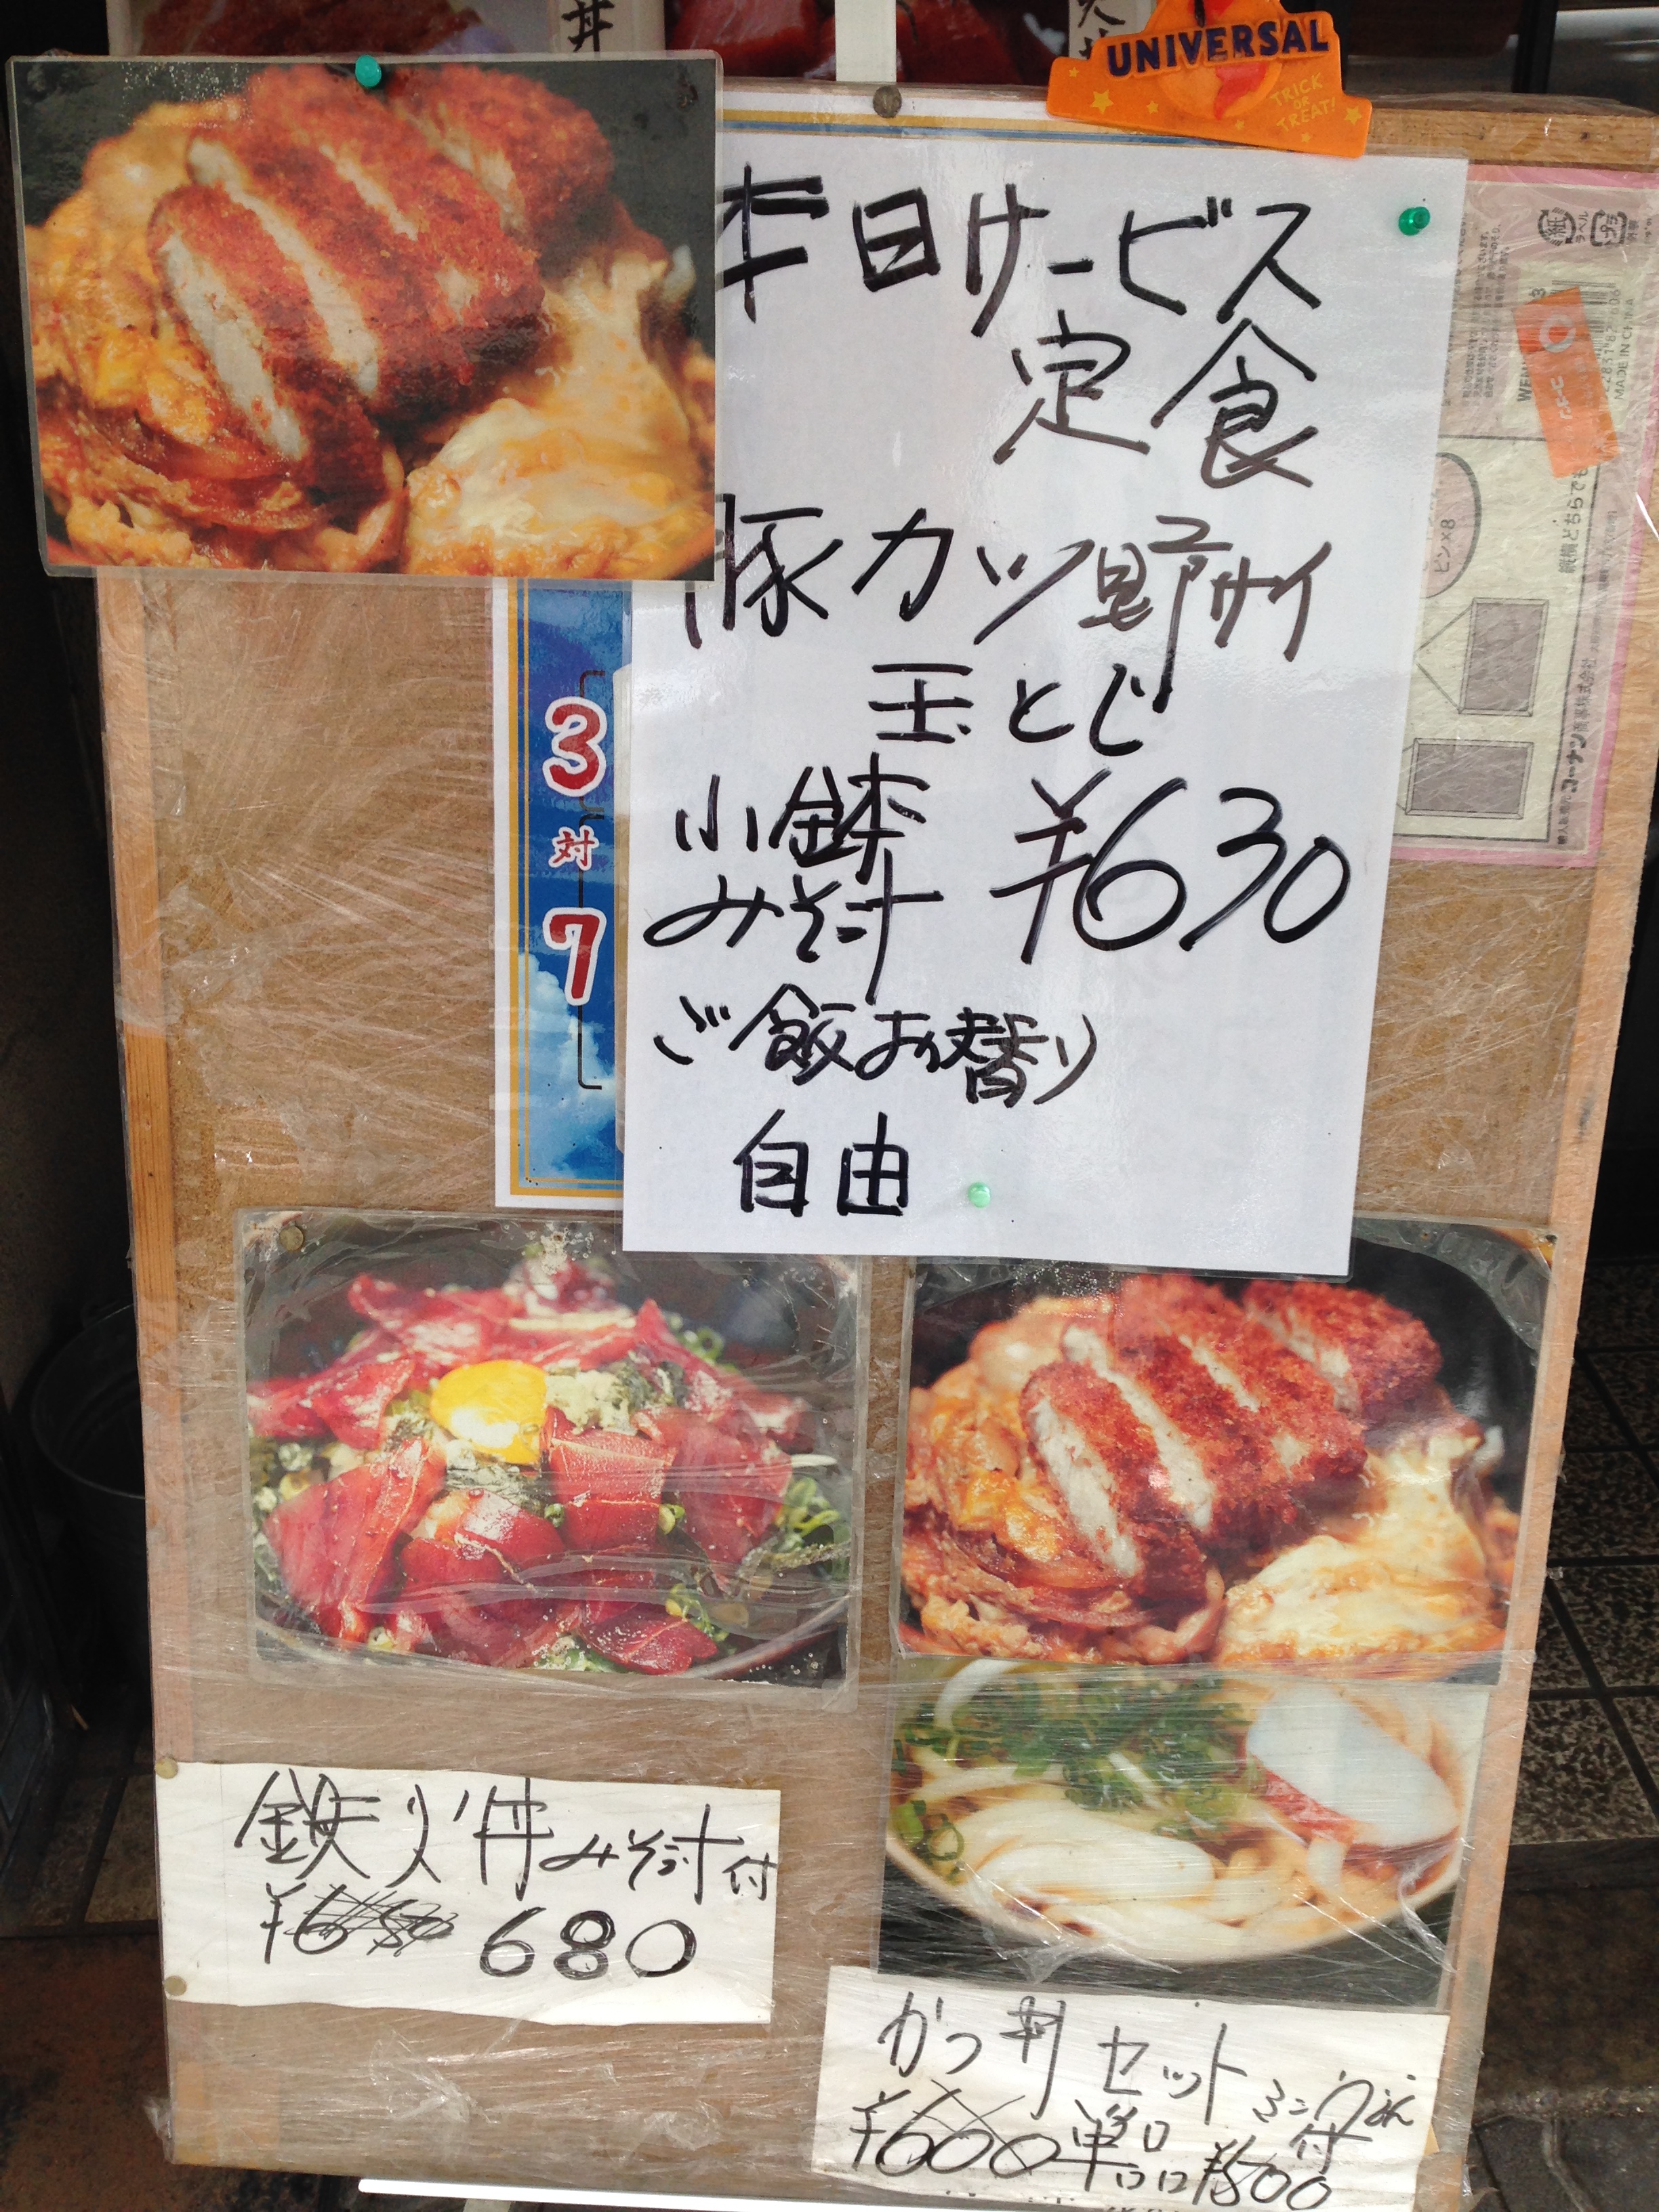 丼
UNIVERSAL
TRICK
OR
TREAT!
本日サービス
定食
豚カツ野サイ
玉とじ
小鉢 ¥630
みそ汁
ご飯お替り
自由
3
対
7
紙
ラベル
プラ
MADE IN CHINA
ピン×8
鉄火丼みそ汁付
680
かつ丼セット ミニうどん
付
¥600 単品 ¥500